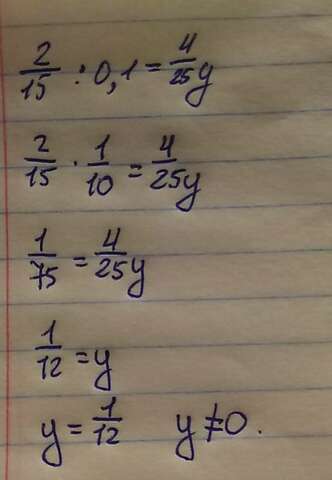 2/15 : 0,1 = 4/25 y
2/15 · 1/10 = 4/25 y
1/75 = 4/25 y
1/12 = y
y = 1/12 y ≠ 0.